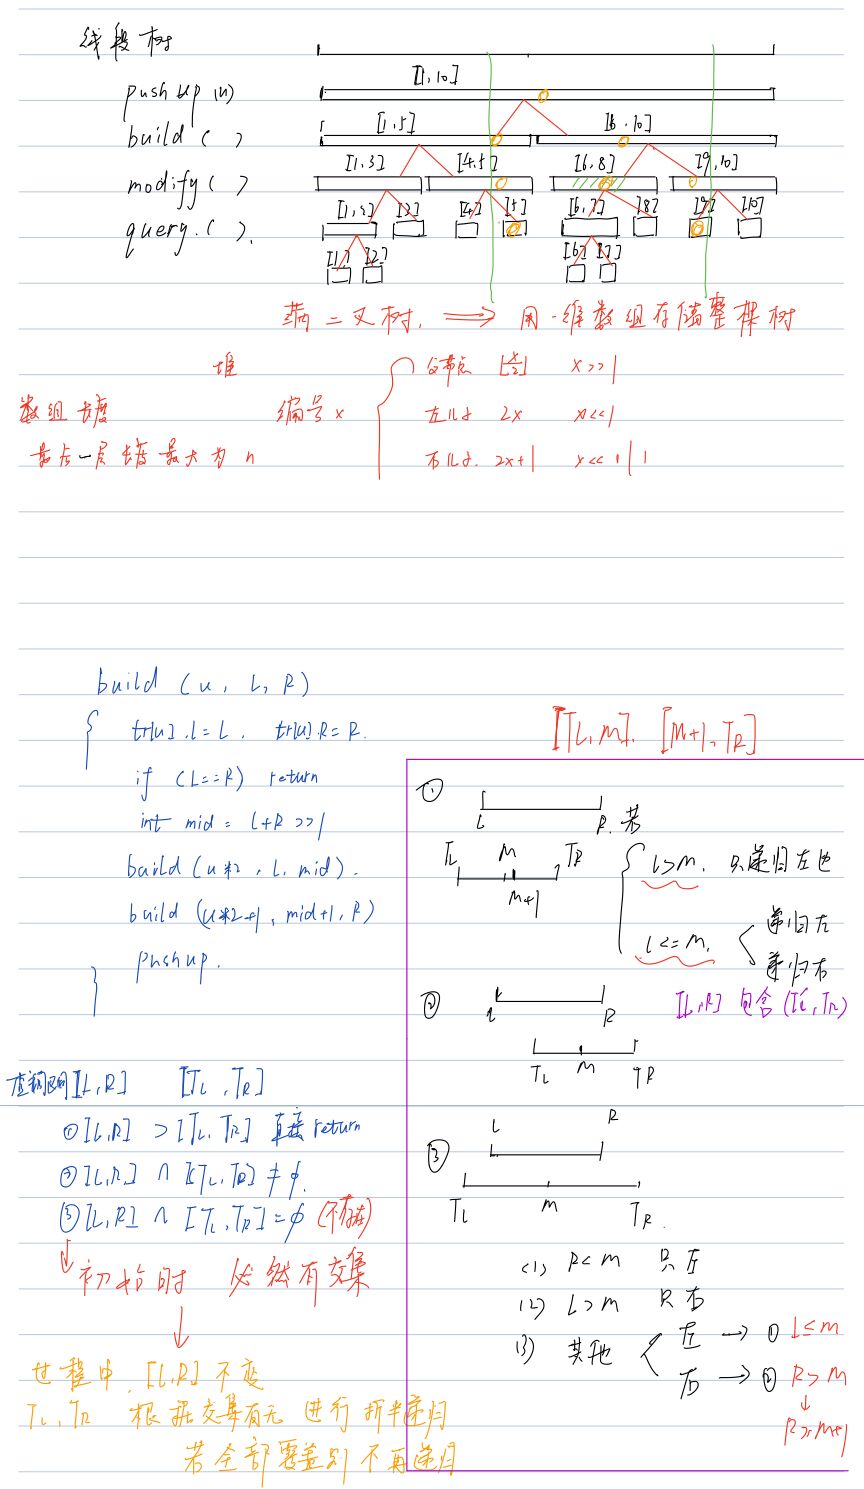 线段树
pushup(u)
build( )
modify( )
query.( ).
[1,10]
[1,5] [6,10]
[1,3] [4,5] [6,8] [9,10]
[1,2] [3] [4] [5] [6,7] [8] [9] [10]
[1] [2] [6] [7]
满二叉树, ⟹ 用一维数组存储整棵树
堆
数组长度
最后一层长度最大为 n
编号 x
父节点 ⌊x/2⌋ x>>1
左儿子 2x x<<1
右儿子. 2x+1 x<<1|1
build (u, L, R)
{ tr[u].l=L. tr[u].R=R.
if (L==R) return
int mid = L+R >>1
build(u*2, L, mid).
build (u*2+1, mid+1, R)
pushup.
}
查询区间[L,R] [TL,TR]
①[L,R] ⊃ [TL,TR] 直接return
②[L,R] ∩ [TL,TR] ≠ ϕ.
③[L,R] ∩ [TL,TR] = ϕ (不存在)
初始时 必然有交集
过程中,[L,R]不变
TL,TR 根据交集有无 进行折半递归
若全部覆盖则不再递归
[TL,M]. [M+1,TR]
①
L R. 若
TL M TR
M+1
L>M. 只递归左边
L<=M.
递归左
递归右
② L R [L,R] 包含 (TL,TR)
TL M TR
③ L R
TL M TR.
(1) R<m 只左
(2) L>m 只右
(3) 其他
左 → ① L≤m
右 → ② R>M
↓
R≥M+1